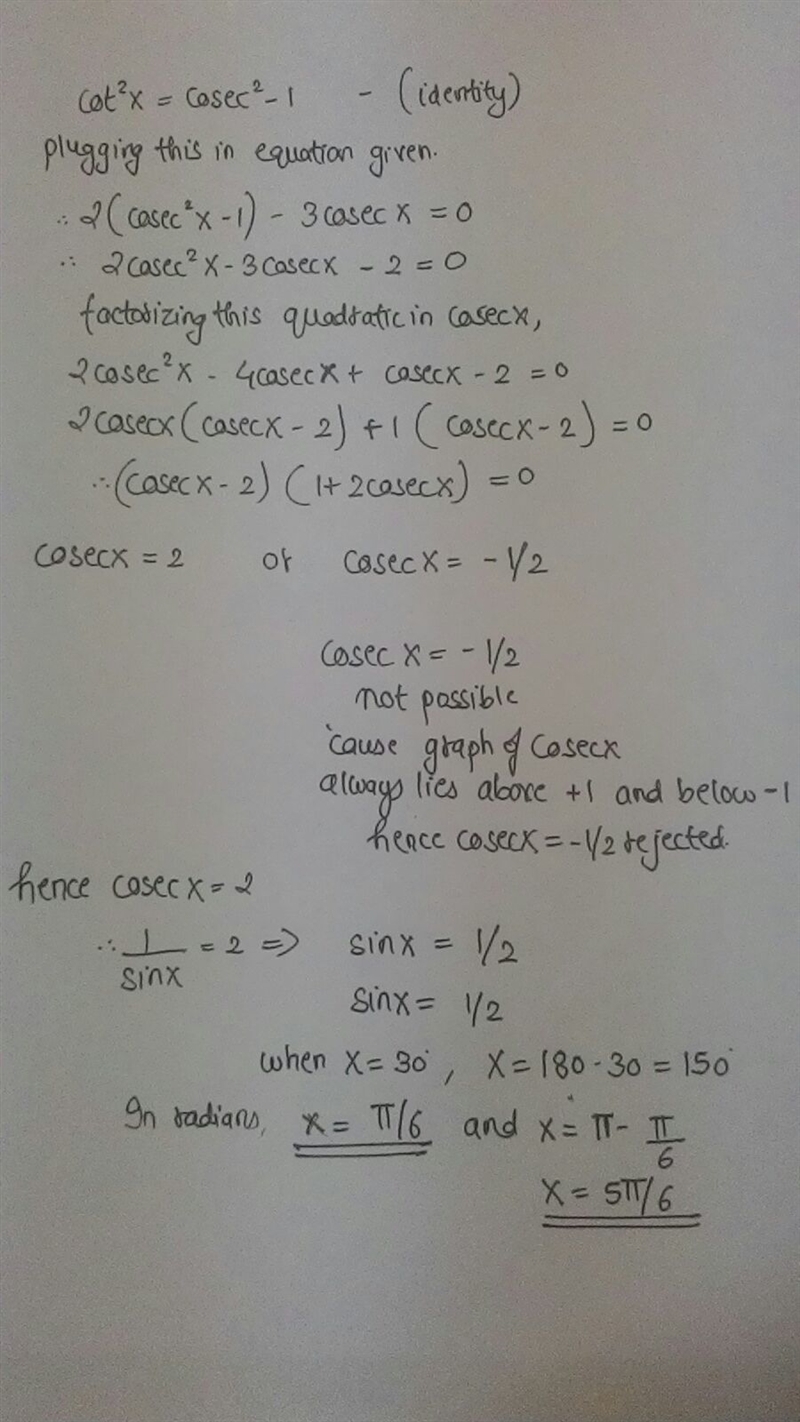 cot²x = cosec² - 1 - (identity)
plugging this in equation given.
∴ 2(cosec²x - 1) - 3cosec x = 0
∴ 2cosec²x - 3cosecx - 2 = 0
factorizing this quadratic in cosecx,
2cosec²x - 4cosecx + cosecx - 2 = 0
2cosecx(cosecx - 2) + 1(cosecx - 2) = 0
∴ (cosecx - 2) (1 + 2cosecx) = 0
cosecx = 2 or cosecx = - 1/2
cosec x = - 1/2
not possible
'cause graph of cosecx
always lies above +1 and below -1
hence cosecx = -1/2 rejected.
hence cosecx = 2
∴ 1/sinx = 2 => sinx = 1/2
sinx = 1/2
when x = 30°, x = 180 - 30 = 150°
In radians, x = π/6 and x = π - π/6
x = 5π/6